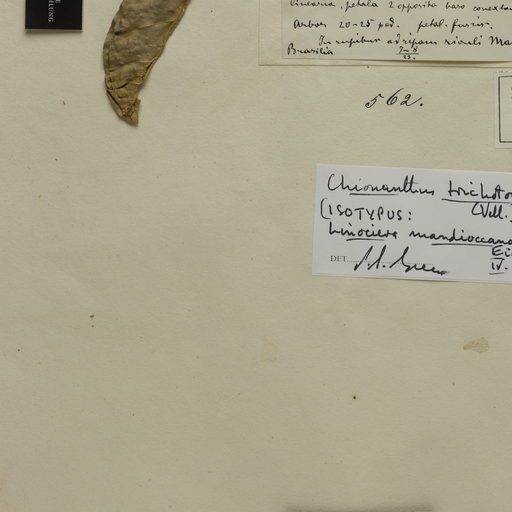 LLUNG
linearia, petala 2 opposita basi conexa
Arbor 20-25 ped. petal. fuscis.
In rupibus ad ripam rivuli Ma
Brasilia 7-8
25.
562.
Chionanthus trichoto
(ISOTYPUS: (Vell.)
Linociera mandioccana
Ei
DET. P.S. Green IV.